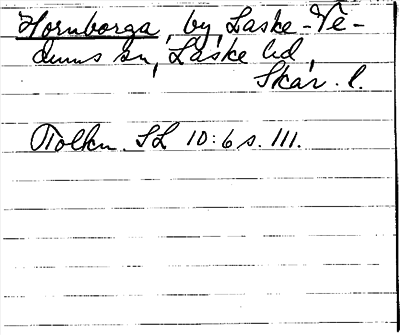 Hornborga, by, Laske-Ve-
dums sn, Laske hd,
Skar. l.
Tolkn. SL 10:6 s. 111.